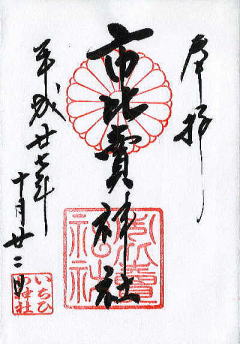 奉拝
市比賣神社
平成廿七年
十月廿二日
いちひ
め神社